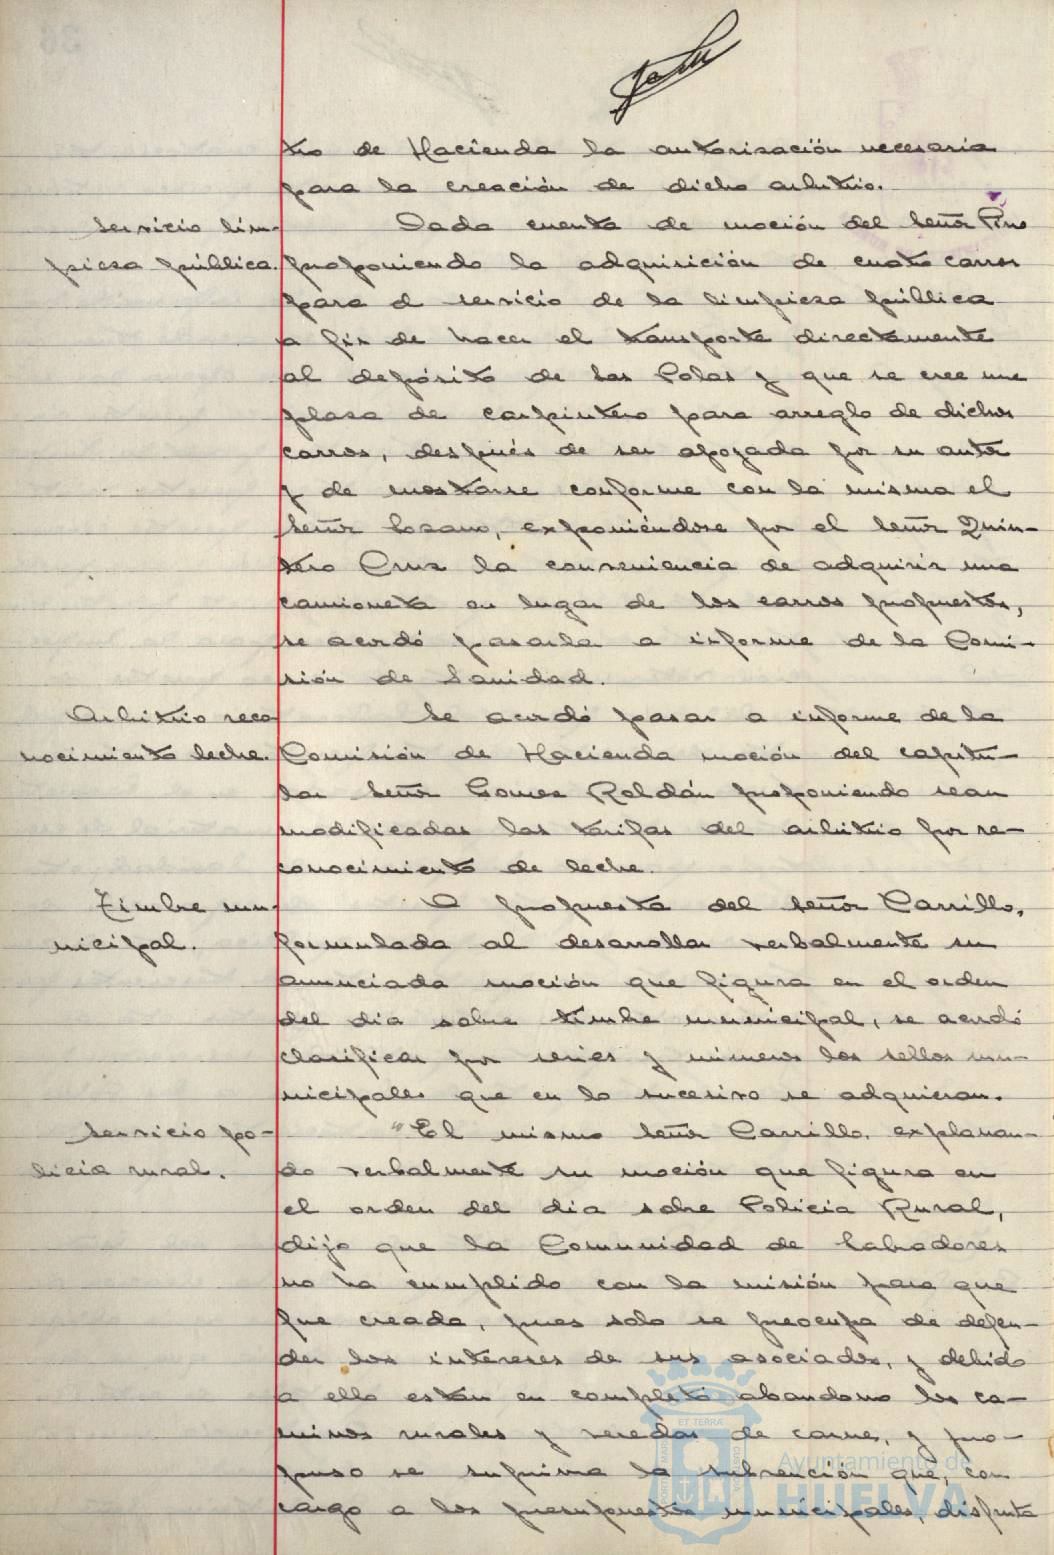 tro de Hacienda la autorización necesaria
para la creación de dicho arbitrio.
Servicio lim-
pieza pública.
Dada cuenta de moción del Señor Pino
proponiendo la adquisición de cuatro carros
para el servicio de la limpieza pública
a fin de hacer el transporte directamente
al depósito de las Colas y que se cree una
plaza de carpintero para arreglo de dichos
carros, después de ser apoyada por su autor
y de mostrarse conforme con la misma el
Señor Lozano, exponiéndose por el Señor Quin-
tero Cruz la conveniencia de adquirir una
camioneta en lugar de los carros propuestos,
se acordó pasarla a informe de la Comi-
sión de Sanidad.
Arbitrio reco
nocimiento leche.
Se acordó pasar a informe de la
Comisión de Hacienda moción del capitu-
lar Señor Gomez Roldán proponiendo sean
modificadas las tarifas del arbitrio por re-
conocimiento de leche.
Timbre mu-
nicipal.
A propuesta del Señor Carrillo,
formulada al desarrollar verbalmente su
anunciada moción que figura en el orden
del dia sobre timbre municipal, se acordó
clasificar por series y números los sellos mu-
nicipales que en lo sucesivo se adquieran.
Servicio po-
licia rural.
"El mismo Señor Carrillo, explanan-
do verbalmente su moción que figura en
el orden del dia sobre Policia Rural,
dijo que la Comunidad de Labradores
no ha cumplido con la misión para que
fue creada, pues solo se preocupa de defen-
der los intereses de sus asociados, y debido
a ello están en completo abandono los ca-
minos rurales y veredas de carne, y pro-
puso se suprima la subvención que, con
cargo a los presupuestos municipales, disfruta
Ayuntamiento de
HUELVA